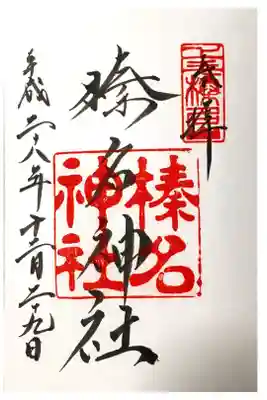 奉拝
榛名神社
榛名
神社
平成二十八年十二月二十九日